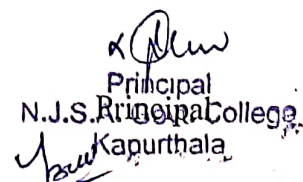 Principal
N.J.S.A. Govt. College
Principal
Kapurthala